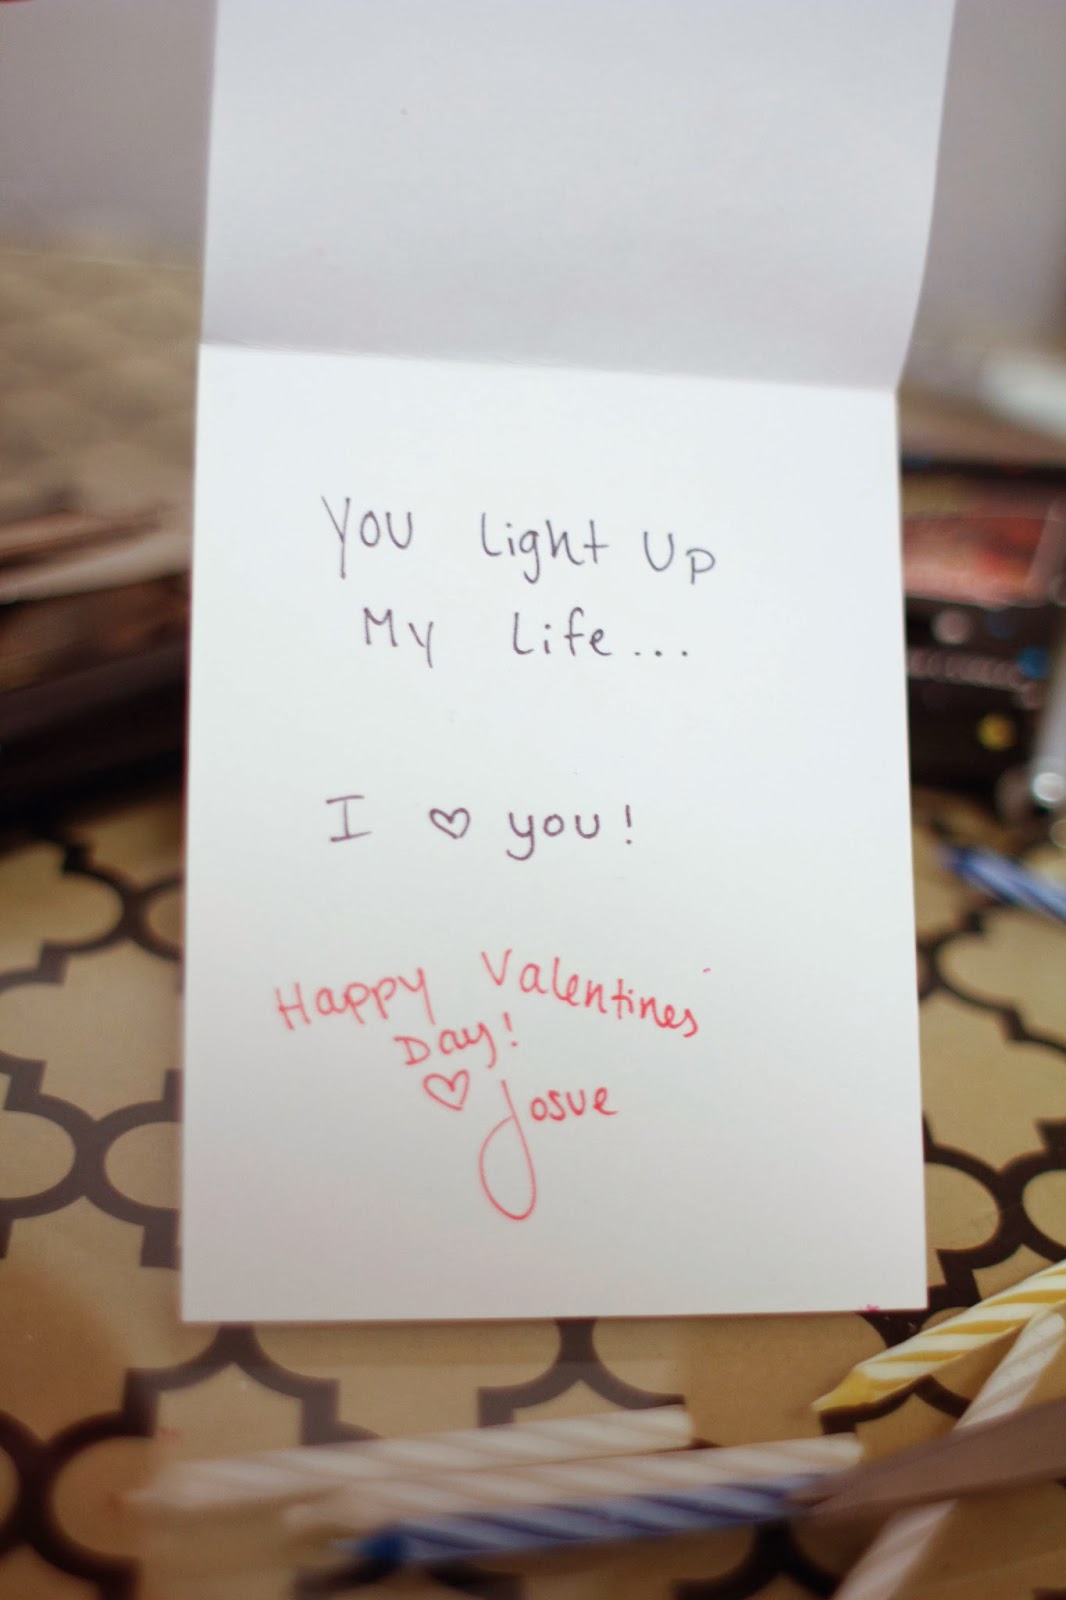 You Light Up
My Life...
I ♡ you!
Happy Valentines
Day!
♡ Josue